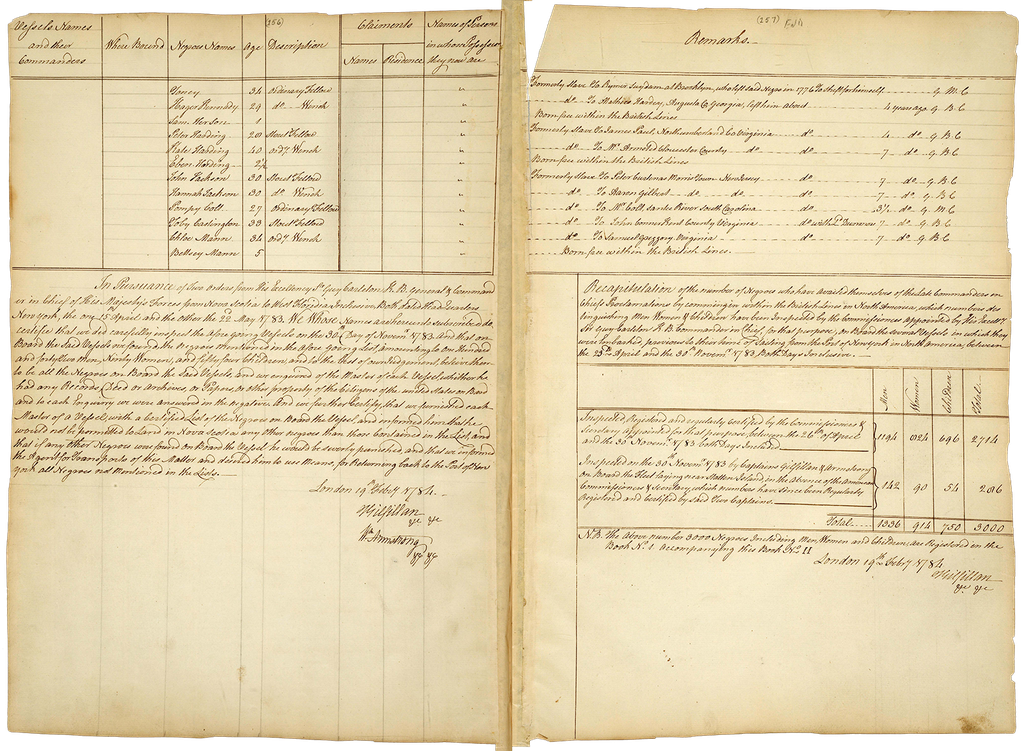 (156)
Vessels Names and their Commanders
Where Bound
Negroes Names
Age
Description
Claimants
Names
Residence
Names of Persons in whose Possession they now are
34 ordinary Fellow "
Kennedy 29 do. Wench "
Herson 1 "
Peter Harding 20 Stout Fellow "
Kate Harding 40 ordy. Wench "
Eben Harding 2½ "
John Jackson 30 Stout Fellow "
Hannah Jackson 30 do. Wench "
Pompey Coll 27 ordinary Fellow "
Toby Castington 33 Stout Fellow "
Chloe Mann 34 ordy. Wench "
Bettsey Mann 5 "
In Pursuance of two orders from His Excellency Sr. Guy Carleton K. B. General & Command
er in Chief of His Majesty's Forces from Nova Scotia to West Florida Inclusive Both dated Head Quarters
New York, the one 15 April and the other the 22d. May 1783. We Whose Names are hereunto subscribed do
Certify that we did carefully inspect the aforegoing Vessels on the 30th Day of Novemr. 1783 And that on
Board the Said Vessels we found the Negroes Mentioned in the afore going List, amounting to One Hundred
and forty two Men, Ninety Women, and fifty four Children, and to the best of our Judgement believe them
to be all the Negroes on Board the Said Vessels, and we enquired of the Master of each Vessel whether he
had any Records, Deeds or Archives, or Papers, or other property of the Citizens of the united States on Board
and to each Enquiry we were answered in the negative. And we further Certify, that we furnished each
Master of a Vessel, with a Certified List of the Negroes on Board the Vessel and informed him that he
would not be permitted to Land in Nova Scotia any other negroes than those Contained in the List, and
that if any other Negroes were found on Board the Vessel he would be severly punished, and that we informed
the Agent for Transports of this Matter and desired him to use Means, for Returning back to the Port of New
York all Negroes not Mentioned in the Lists.
London 19th Feby. 1784.
Gilfillan
Wm. Armstrong
(157)
Remarks.
Formerly Slave to Rynier Suydam at Brooklyn, who left said Negroe in 1776 to shift for himself. G. M. C
do. To Mathew Hardey, Augusta Co. Georgia, left him about 4 years ago G. B. C
Born free within the British Lines
Formerly Slave To James Paul, Northumberland Co Virginia do. 4 do. G. B. C
do. To Mr. Armsted Gloucester County do do. 7 do. G. B. C
Born free within the British Lines
Formerly Slave to Peter Cushman Morris Town New Jersey do. 7 do. G. B. C
do. To Aaron Gilbert do. do. do. 7 do. G. B. C
do. To Mr. Coll, Santee River South Carolina do. 3½ do. G. M. C
do. To John Conner Kent County Virginia do. with Ld. Dunmore 7 do. G. B. C
do. To Samuel Greggory Virginia do. 7 do. G. B. C
Born free within the British Lines.
Recapitulation of the number of Negroes who have availed themselves of the late Commanders in
Chiefs Proclamations by comming in within the British Lines in North America, which number des
tinguishing Men Women & Children have been Inspected by the Commissioners appointed by His Excelly.
Sir Guy Carleton K. B. Commander in Chief, for that purpose, on Board the several Vessels in which they
were embarked, previous to their time of Sailing from the Port of New york in North America, between
the 23d. April and the 30th. Novemr. 1783. Both Days Inclusive.
Men
Women
Children
Total
Inspected, Registered and regularly certified by the Commissioners &
Secretary appointed for that purpose, between the 26th of April
and the 30 Novemr. 1783 both Days Included
1194 824 696 2714
Inspected on the 30th Novemr. 1783 by Captains Gilfillan & Armstrong
on Board the Fleet laying near Statten Island, in the absence of the American
Commissioners & Secretary, which numbers have since been Regularly
Registered and Certified by Said Two Captains.
142 90 54 286
Total 1336 914 750 3000
N.B. The above number 3000 Negroes Including Men, Women and Children, are Registered in the
Book No. 1. Accompanying this Book No. II
London 19th Feby. 1784
Gilfillan